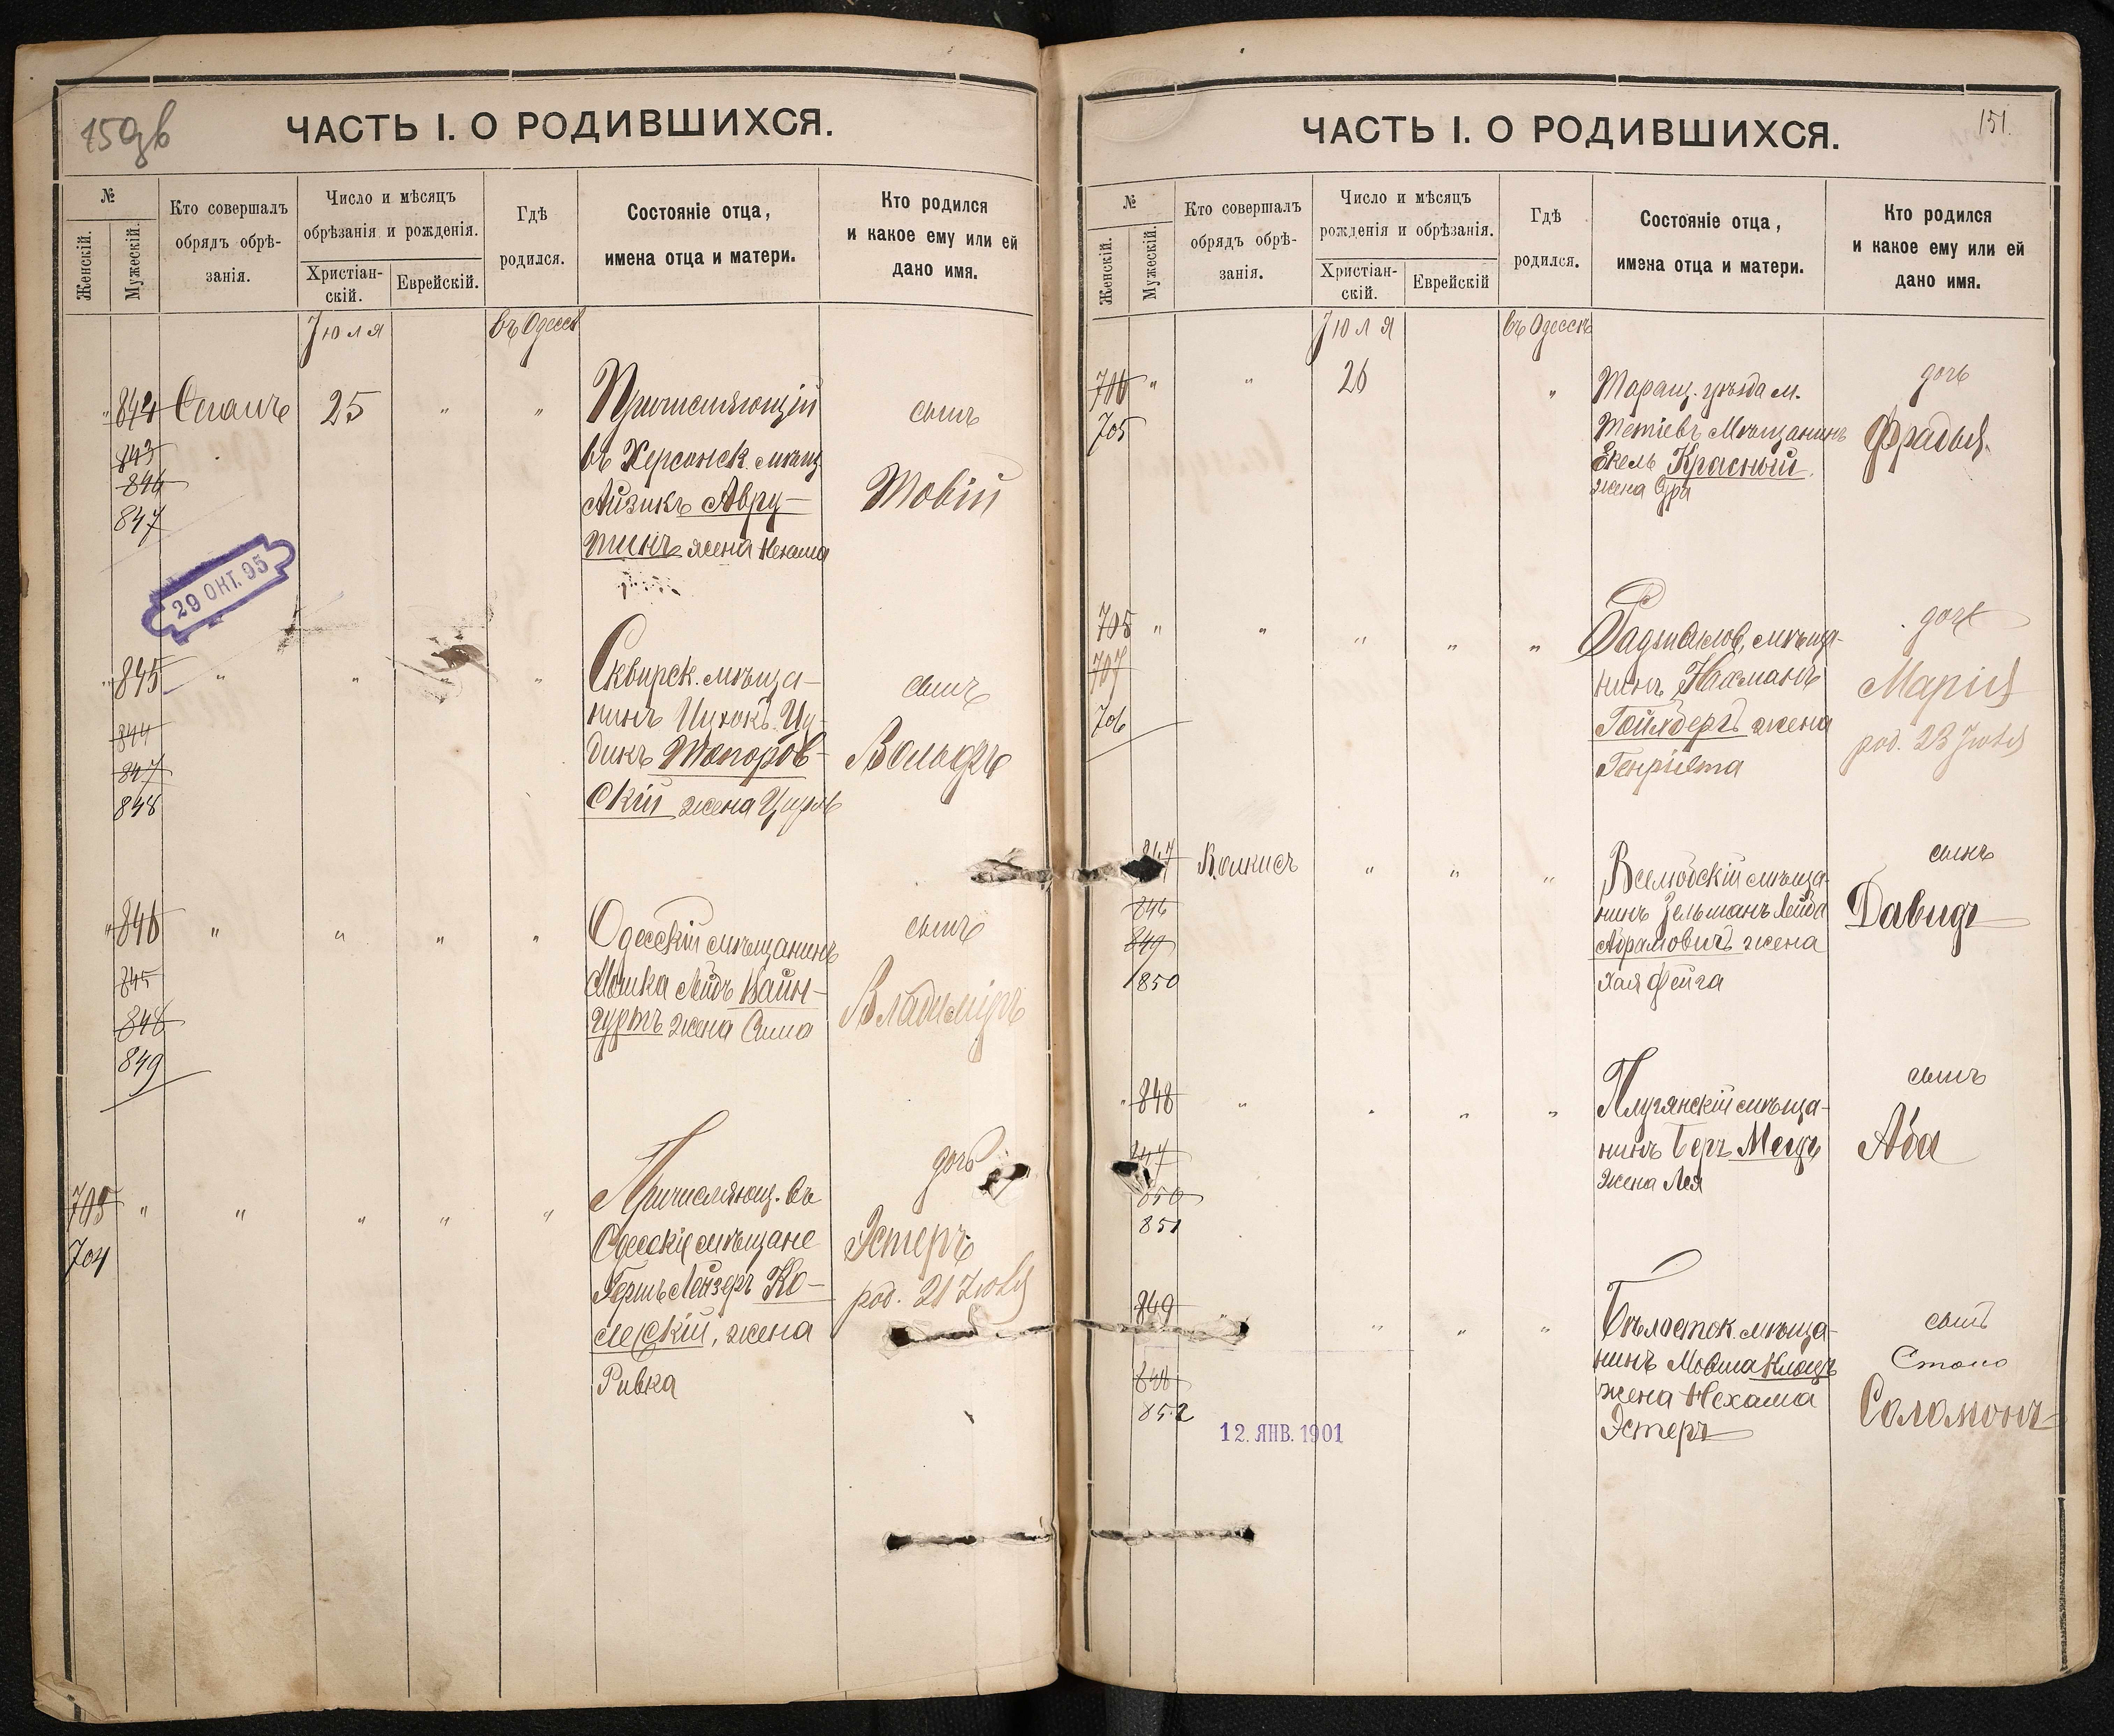 150об
ЧАСТЬ I. О РОДИВШИХСЯ.
№
Женскій.
Мужескій.
Кто совершалъ
обрядъ обрѣ-
занія.
Число и мѣсяцъ
обрѣзанія и рожденія.
Христіан-
скій.
Еврейскій.
Гдѣ
родился.
Состояніе отца,
имена отца и матери.
Кто родился
и какое ему или ей
дано имя.
Іюля
въ Одессѣ
" 844
843
846
847
25
"
"
Причисляющій
въ Херсонск. мѣщ.
Айзикъ Авру-
тинъ жена Нехама
сынъ
Товій
29 ОКТ. 95
" 845
844
847
848
"
"
"
Сквирск. мѣща-
нинъ Ицхокъ Иу-
дикъ Топоров-
скій жена Цирля
сынъ
Вольфъ
" 846
845
848
849
"
"
"
"
Одесскій мѣщанинъ
Мошка Лейбъ Вайн-
гуртъ жена Сима
сынъ
Владиміръ
705
704
"
"
"
"
"
Причисляющ. въ
Одесскіе мѣщане
Гершъ Лейзеръ Ко-
лескій, жена
Ривка
дочь
Эстеръ
род. 21 Іюля
151.
ЧАСТЬ I. О РОДИВШИХСЯ.
№
Женскій.
Мужескій.
Кто совершалъ
обрядъ обрѣ-
занія.
Число и мѣсяцъ
рожденія и обрѣзанія.
Христіан-
скій.
Еврейскій
Гдѣ
родился.
Состояніе отца,
имена отца и матери.
Кто родился
и какое ему или ей
дано имя.
Іюля
въ Одессѣ
706
705
"
"
26
"
Таращ. уѣзда м.
Тетіевъ Мѣщанинъ
Красный
жена Сура
дочь
Фрадья
705
707
706
"
"
"
"
"
мѣща-
нинъ Нахманъ
Гойхбергъ жена
Генріета
дочь
Марія
род. 23 Іюля
847
846
849
850
"
"
"
мѣща-
нинъ Зельманъ Лейба
Абрамовичъ жена
Хая Фейга
сынъ
Давидъ
" 848
847
850
851
"
"
"
"
Плугянскій мѣща-
нинъ Беръ Мецъ
жена Лея
сынъ
Аба
849
848
852
"
"
"
"
Бѣлосток. мѣща-
нинъ Мовша Клоцъ
жена Нехама
Эстеръ
сынъ
Соломонъ
12. ЯНВ. 1901